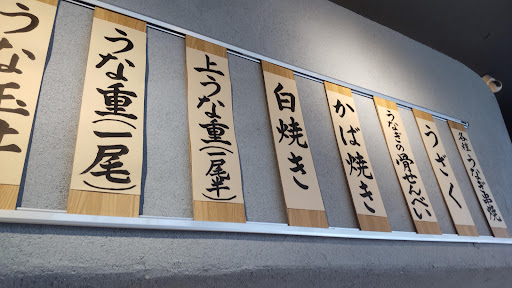 各種うなぎ串焼
うざく
うなぎの骨せんべい
かば焼き
白焼き
上うな重(一尾半)
うな重(一尾)
うな玉丼